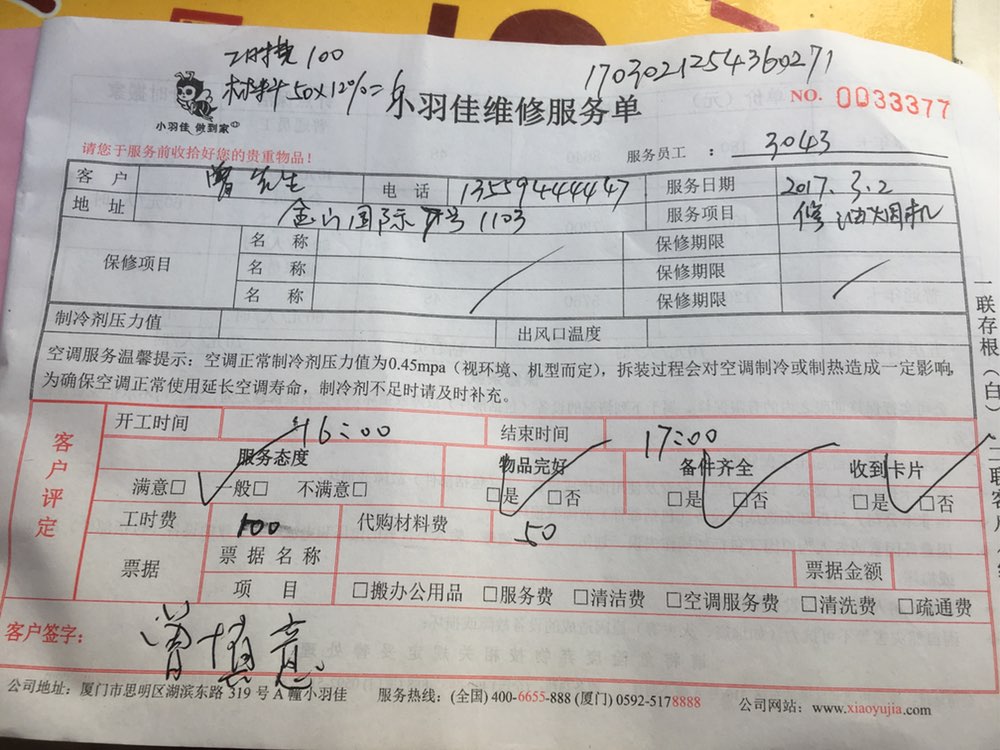 工时费100
材料50×12%=6
1703021254360271
小羽佳 做到家
小羽佳维修服务单
NO. 0033377
请您于服务前收拾好您的贵重物品！
服务员工 ： 3043
客 户 曾先生 电 话 13559444447 服务日期 2017.3.2
地 址 金山国际 号1103 服务项目 修油烟机
保修项目
名 称 保修期限
名 称 保修期限
名 称 保修期限
制冷剂压力值 出风口温度
空调服务温馨提示：空调正常制冷剂压力值为0.45mpa（视环境、机型而定），拆装过程会对空调制冷或制热造成一定影响，
为确保空调正常使用延长空调寿命，制冷剂不足时请及时补充。
客户评定
开工时间 16:00 结束时间 17:00
服务态度 物品完好 备件齐全 收到卡片
满意□ 一般□ 不满意□ □是 □否 □是 □否 □是 □否
工时费 100 代购材料费 50
票据 票据名称 票据金额
项 目 □搬办公用品 □服务费 □清洁费 □空调服务费 □清洗费 □疏通费
客户签字： 曾慎意
公司地址：厦门市思明区湖滨东路 319 号 A 幢小羽佳 服务热线：(全国) 400-6655-888 (厦门) 0592-5178888 公司网站：www.xiaoyujia.com
一联存根（白）二联客户